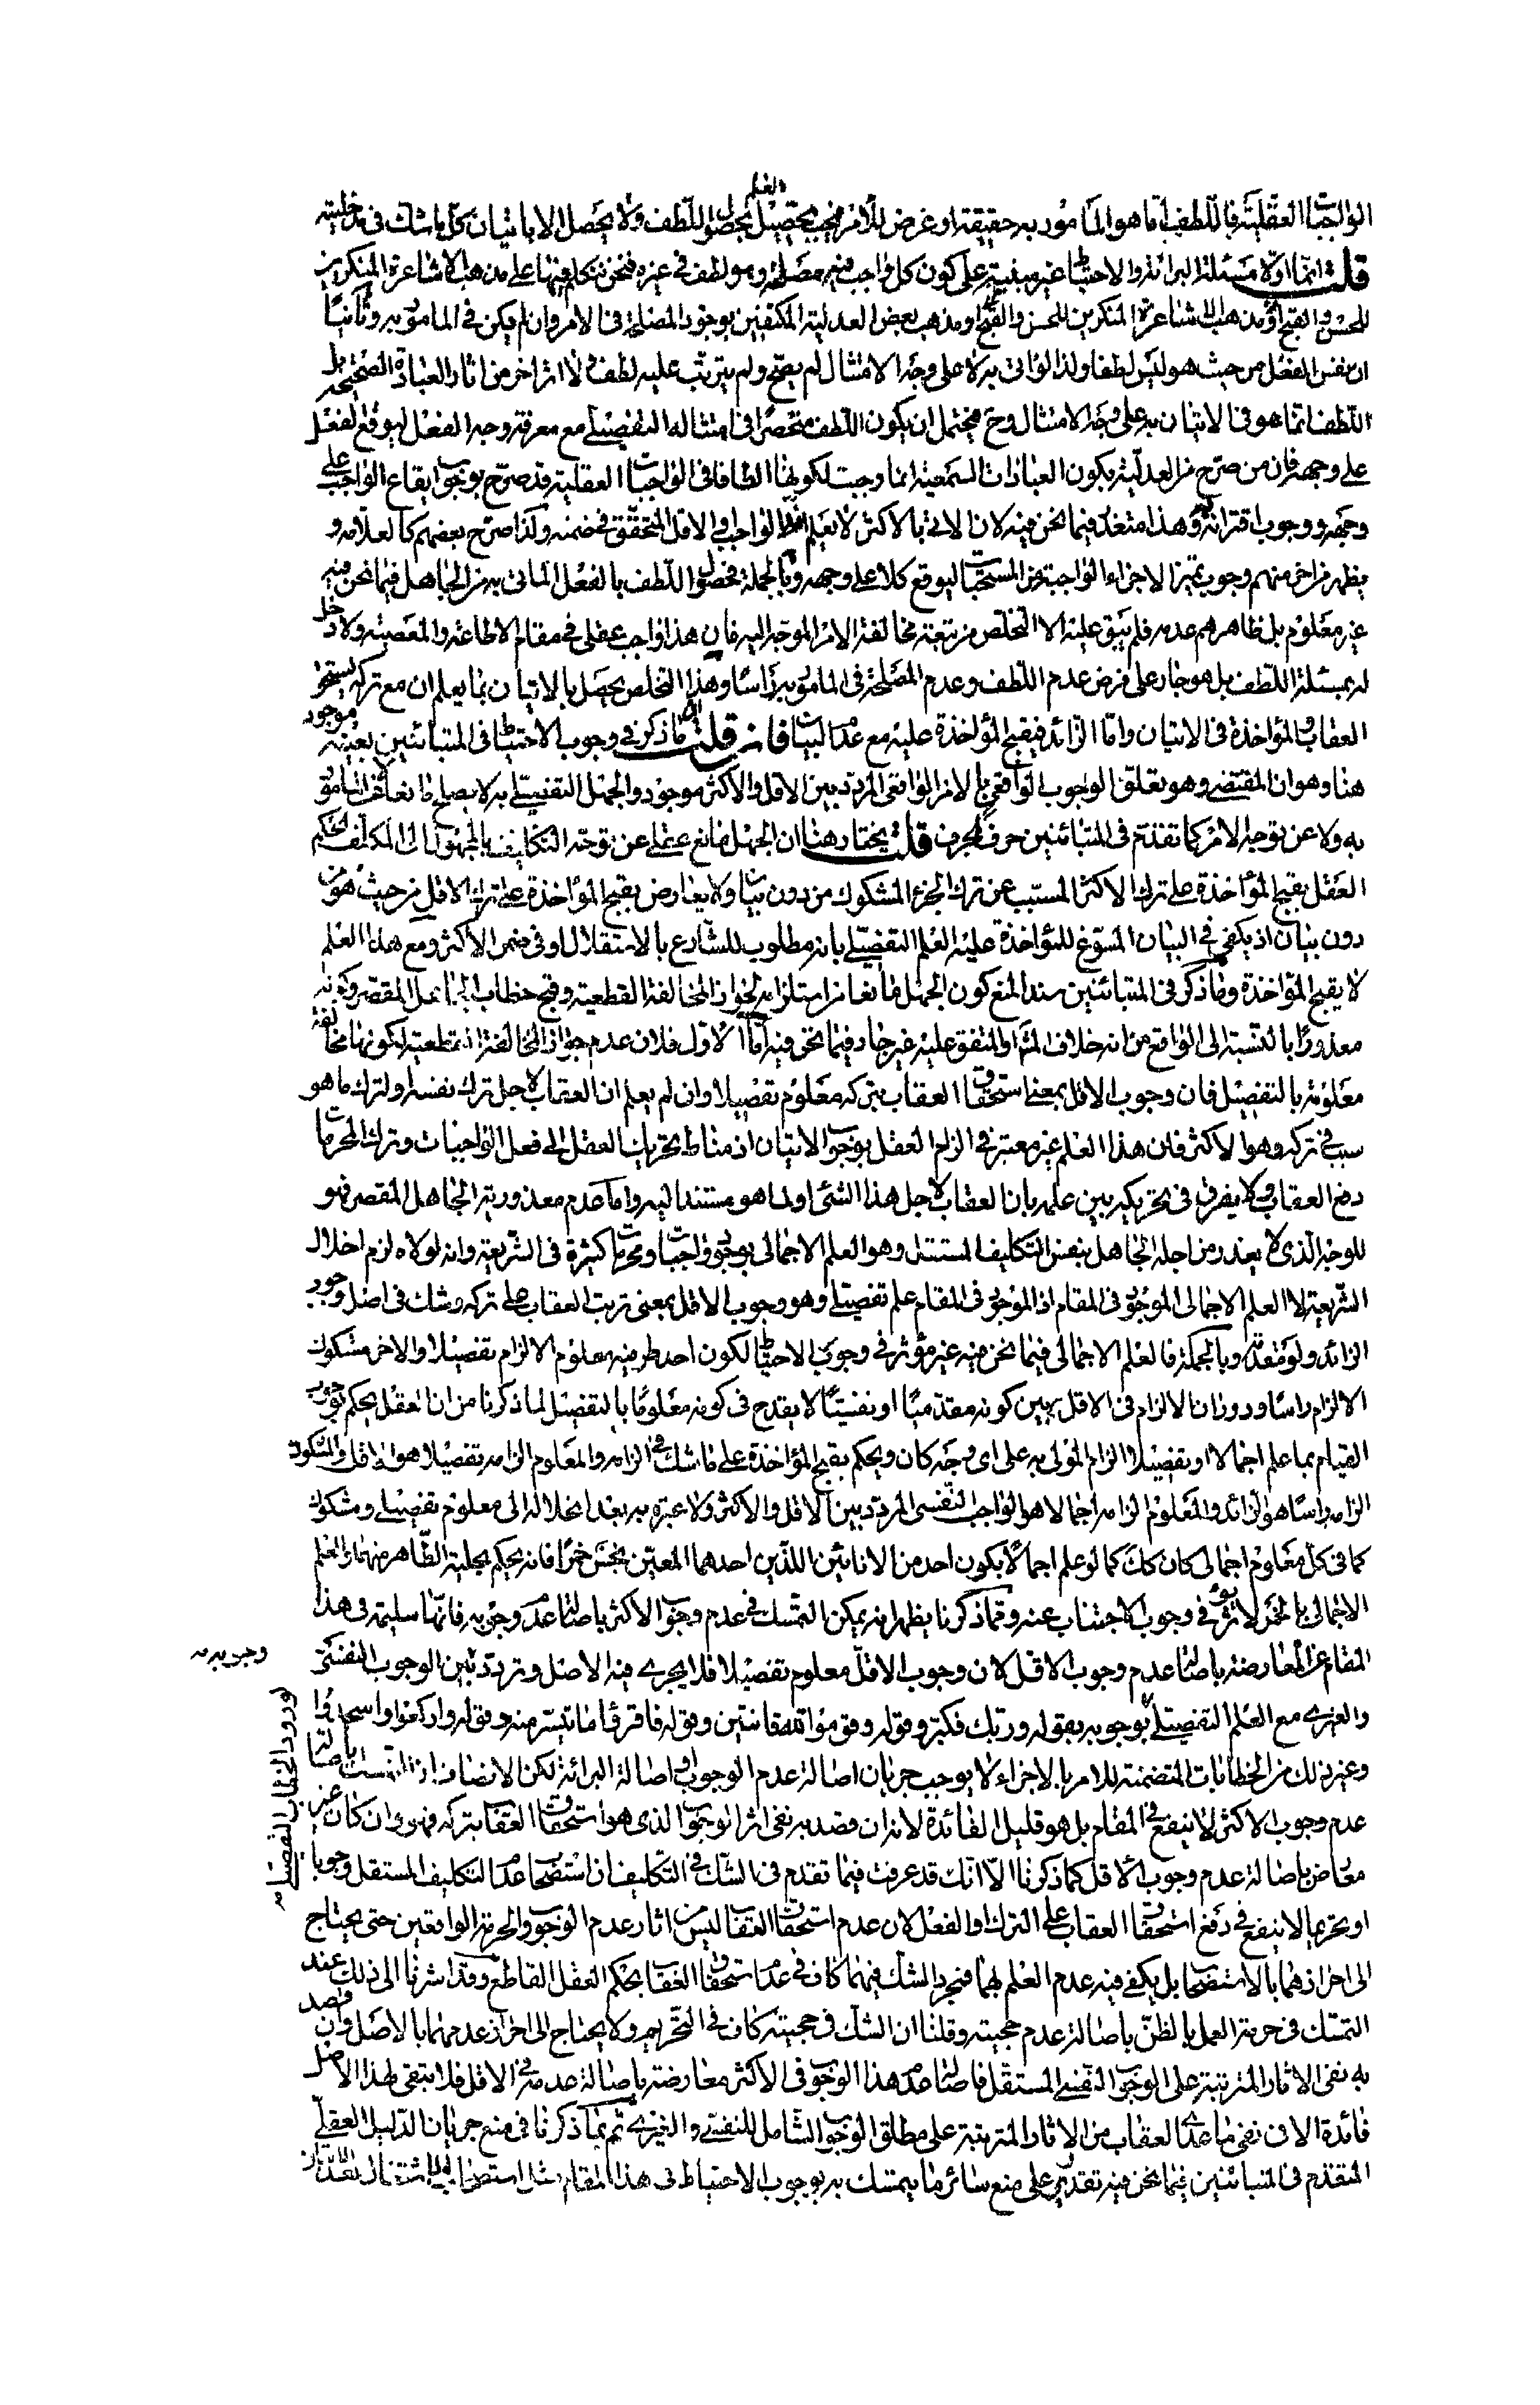 العلم
الواجبات العقلية فاللطف امّا هو المأمور به حقيقة او غرض للأمر فيجب تحصيل بحصول اللطف ولا يحصل الا باتيان كل ما شك في مدخليته
قلت اولا مسئلة البرائة والاحتياط غير مبنية على كون كل واجب فيه مصلحة وهو لطف في غيره فنحن نتكلم فيها على مذهب الاشاعرة المنكرين
للحسن والقبح او مذهب الاشاعرة المنكرين للحسن والقبح او مذهب بعض العدلية المكتفين بوجود المصلحة في الامر وان لم يكن في المامور به وثانيا
ان نفس الفعل من حيث هو ليس لطفا ولذا لو اتى به لا على وجه الامتثال لم يصح ولم يترتب عليه لطف ولا اثر اخر من اثار العبادة الصحيحة بل
اللطف انما هو في الاتيان به على وجه الامتثال وح فيحتمل ان يكون اللطف منحصرا في امتثاله التفصيلي مع معرفة وجه الفعل ليوقع الفعل
على وجهه فان من صرح من العدلية بكون العبادات السمعية انما وجبت لكونها الطافا في الواجبات العقلية قد صرح بوجوب ايقاع الواجب على
وجهه ووجوب اقترانه به وهذا متعذر فيما نحن فيه لان الاتي بالاكثر لا يعلم انه الواجب او الاقل المتحقق في ضمنه ولذا صرح بعضهم كالعلامة و
يظهر من اخر منهم وجوب تميز الاجزاء الواجبة من المستحبات ليوقع كلا على وجهه وبالجملة فحصول اللطف بالفعل الماتى به من الجاهل فيما نحن فيه
غير معلوم بل ظاهرهم عدمه فلم يبق عليه الا التخلص من تبعة مخالفة الامر الموجه اليه فان هذا واجب عقلي في مقام الاطاعة والمعصية ولا دخل
له بمسئلة اللطف بل هو جار على فرض عدم اللطف وعدم المصلحة في المامور به راسا وهذا التخلص يحصل بالاتيان بما يعلم ان مع تركه يستحق
العقاب والمؤاخذة في الاتيان وامّا الزائد فيقبح المؤاخذة عليه مع عدم البيان فان قلت ان ما ذكر في وجوب الاحتياط في المتباينين بعينه موجود
هنا وهو ان المقتضي وهو تعلق الوجوب الواقعي بالامر الواقعي المردد بين الاقل والاكثر موجود والجهل التفصيلي به لا يصلح مانعا لا عن المامور
به ولا عن توجه الامر كما تقدم في المتباينين حرفا بحرف قلت يختار هنا ان الجهل مانع عقلي عن توجه التكليف بالمجهول الى المكلف لحكم
العقل بقبح المؤاخذة على ترك الاكثر المسبب عن ترك الجزء المشكوك من دون بيان ولا يعارض بقبح المؤاخذة على ترك الاقل من حيث هو من
دون بيان اذ يكفي في البيان المسوغ للمؤاخذة عليه العلم التفصيلي بانه مطلوب للشارع بالاستقلال او في ضمن الاكثر ومع هذا العلم
لا يقبح المؤاخذة وما ذكر في المتباينين سندا لمنع كون الجهل مانعا من استلزامه لجواز المخالفة القطعية وقبح خطاب الجاهل المقصر وكونه
معذورا بالنسبة الى الواقع مع انه خلاف المشهور او المتفق عليه غير جار فيما نحن فيه امّا الاول فلان عدم جواز المخالفة القطعية لكونها مخالفة
معلومة بالتفصيل فان وجوب الاقل بمعنى استحقاق العقاب بتركه معلوم تفصيلا وان لم يعلم ان العقاب لاجل ترك نفسه او لترك ما هو
سبب في تركه وهو الاكثر فان هذا العلم غير معتبر في الزام العقل بوجوب الاتيان اذ مناط تحريك العقل الى فعل الواجبات وترك المحرمات
دفع العقاب ولا يفرق في تحريكه بين علمه بان العقاب لاجل هذا الشئ او لما هو مستند اليه وامّا عدم معذورية الجاهل المقصر فهو
للوجه الذي لا يعذر من اجله الجاهل بنفس التكليف المستقل وهو العلم الاجمالي بوجود واجبات ومحرمات كثيرة في الشريعة وانه لولاه لزم اخلال
الشريعة لا العلم الاجمالي الموجود في المقام اذ الموجود في المقام علم تفصيلي وهو وجوب الاقل بمعنى ترتب العقاب على تركه وشك في اصل وجوب
الزائد ولو مقدمة وبالجملة فالعلم الاجمالي فيما نحن فيه غير مؤثر في وجوب الاحتياط لكون احد طرفيه معلوم الالزام تفصيلا والاخر مشكوك
الالزام راسا ودوران الالزام في الاقل بين كونه مقدميا او نفسيا لا يقدح في كونه معلوما بالتفصيل لما ذكرنا من ان العقل يحكم بوجوب
القيام بما علم اجمالا او تفصيلا الزام المولى به على اى وجه كان ويحكم بقبح المؤاخذة على ما شك في الزامه والمعلوم الزامه تفصيلا هو الاقل والمشكوك
الزامه راسا هو الزائد والمعلوم الزامه اجمالا هو الواجب النفسي المردد بين الاقل والاكثر ولا عبرة به بعد انحلاله الى معلوم تفصيلي ومشكوك
كما في كل معلوم اجمالي كان كك كما لو علم اجمالا بكون احد من الانائين اللذين احدهما المعين نجس خمرا فانه يحكم بحلية الطاهر منهما والعلم
الاجمالي بالخمر لا يؤثر في وجوب الاجتناب عنه ومما ذكرنا يظهر انه يمكن التمسك في عدم وجوب الاكثر باصالة عدم وجوبه فانها سليمة في هذا
المقام عن المعارضة باصالة عدم وجوب الاقل لان وجوب الاقل معلوم تفصيلا فلا يجري فيه الاصل وتردد بين الوجوب النفسي
والغيري مع العلم التفصيلي بوجوبه بقوله وربك فكبر وقوله وقوموا لله قانتين وقوله فاقرؤا ما تيسر منه وقوله واركعوا واسجدوا
وغير ذلك من الخطابات المتضمنة للامر بالاجزاء لا يوجب جريان اصالة عدم الوجوب او اصالة البرائة لكن الانصاف ان التمسك باصالة
عدم وجوب الاكثر لا ينفع في المقام بل هو قليل الفائدة لانه ان قصد به نفي اثر الوجوب الذي هو استحقاق العقاب بتركه فهو وان كان غير
معارض باصالة عدم وجوب الاقل كما ذكرنا الا انك قد عرفت فيما تقدم في الشك في التكليف ان استصحاب عدم التكليف المستقل وجوبا
او تحريما لا ينفع في دفع استحقاق العقاب على الترك او الفعل لان عدم استحقاق العقاب ليس من اثار عدم الوجوب والحرمة الواقعين حتى يحتاج
الى احرازهما بالاستصحاب بل يكفي فيه عدم العلم بهما فمجرد الشك فيهما كاف في عدم استحقاق العقاب بحكم العقل القاطع وقد اشرنا الى ذلك عند
التمسك في حرمة العمل بالظن باصالة عدم حجيته وقلنا ان الشك في حجيته كاف في التحريم ولا يحتاج الى احراز عدمها بالاصل وان قصد
به نفي الاثار المترتبة على الوجوب النفسي المستقل فاصالة عدم هذا الوجوب في الاكثر معارضة باصالة عدمه في الاقل فلا تبقى لهذا الاصل
فائدة الا في نفي ما عدا العقاب من الاثار المترتبة على مطلق الوجوب الشامل للنفسي والغيري ثم بما ذكرنا في منع جريان الدليل العقلي
المتقدم في المتباينين فيما نحن فيه تقدر على منع سائر ما يتمسك به بوجوب الاحتياط في هذا المقام مثل استصحاب الاشتغال
وجوبه
لورود الخطاب التفصيلي